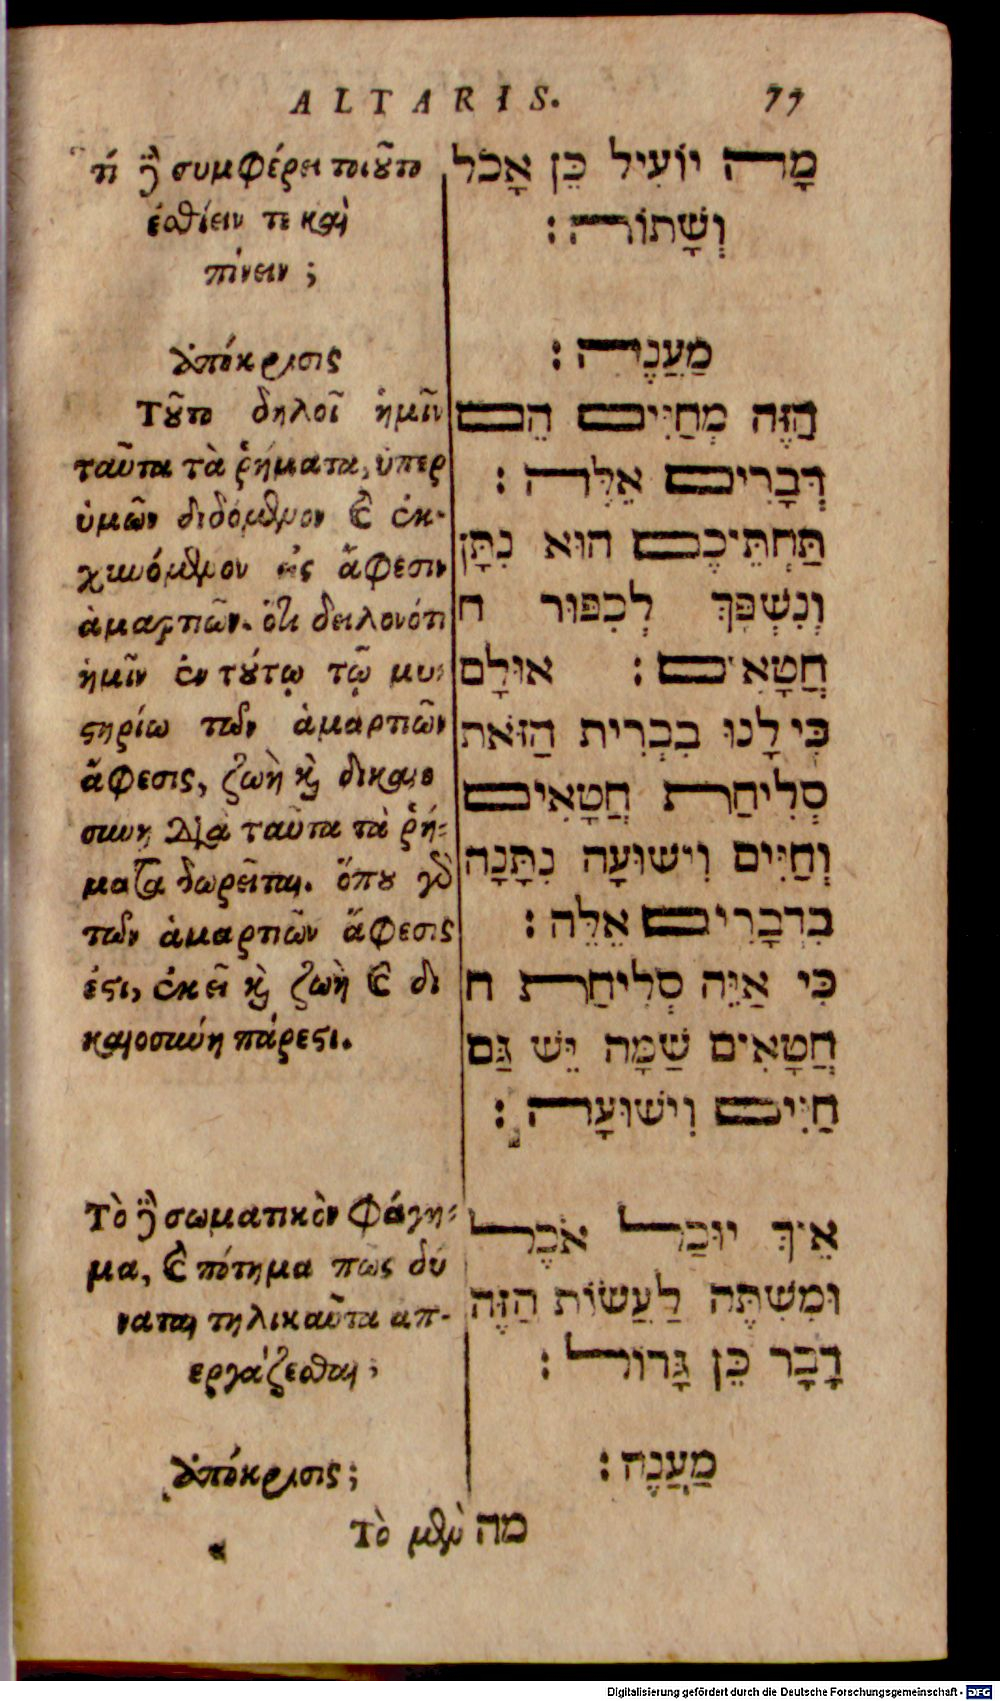 ALTARIS. 77
τί δὲ συμφέρει τοιοῦτο
ἐσθίειν τε καὶ
πίνειν ;
ἀπόκρισις
Τοῦτο δηλοῖ ἡμῖν
ταῦτα τὰ ῥήματα, ὑπερ
ὑμῶν διδόμενον καὶ ἐκ-
χυνόμενον εἰς ἄφεσιν
ἁμαρτιῶν. ὅτι δειλονότι
ἡμῖν ἐν τούτῳ τῷ μυ-
στηρίω τῶν ἁμαρτιῶν
ἄφεσις, ζωὴ καὶ δικαιο
σύνη διὰ ταῦτα τὰ ῥή-
ματα δωρεῖται. ὅπου γὰρ
τῶν ἁμαρτιῶν ἄφεσις
ἐστι, ἐκεῖ καὶ ζωὴ καὶ δι
καιοσύνη πάρεστι.
Τὸ δὲ σωματικὸν φάγη-
μα, καὶ πότημα πῶς δύ
ναται τηλικαῦτα ἀπ-
εργάζεσθαι ;
ἀπόκρισις ;
Τὸ μὲν
מָה יוֹעִיל כֵּן אָכֹל
וְשָׁתוֹה :
מַעֲנֶה :
הַזֶּה מְחַיִּים הֵם
דְּבָרִים אֵלֶּה :
תַּחְתֵּיכֶם הוּא נִתָּן
וְנִשְׁפַּךְ לְכִפּוּר ח
חֲטָאִים : אוּלָם
כִּי לָנוּ בִבְרִית הַזֹּאת
סְלִיחַת חֲטָאִים
וְחַיִּים וִישׁוּעָה נִתָּנָה
בִּדְבָרִים אֵלֶּה :
כִּי אַיֵּה סְלִיחַת ח
חֲטָאִים שַׁמָּה יֵשׁ גַּם
חַיִּים וִישׁוּעָה :
אֵיךְ יוּכַל אֹכֶל
וּמִשְׁתֶּה לַעֲשׂוֹת הַזֶּה
דָּבָר כֵּן גָּדוֹל :
מַעֲנֶה :
מה
Digitalisierung gefördert durch die Deutsche Forschungsgemeinschaft - DFG